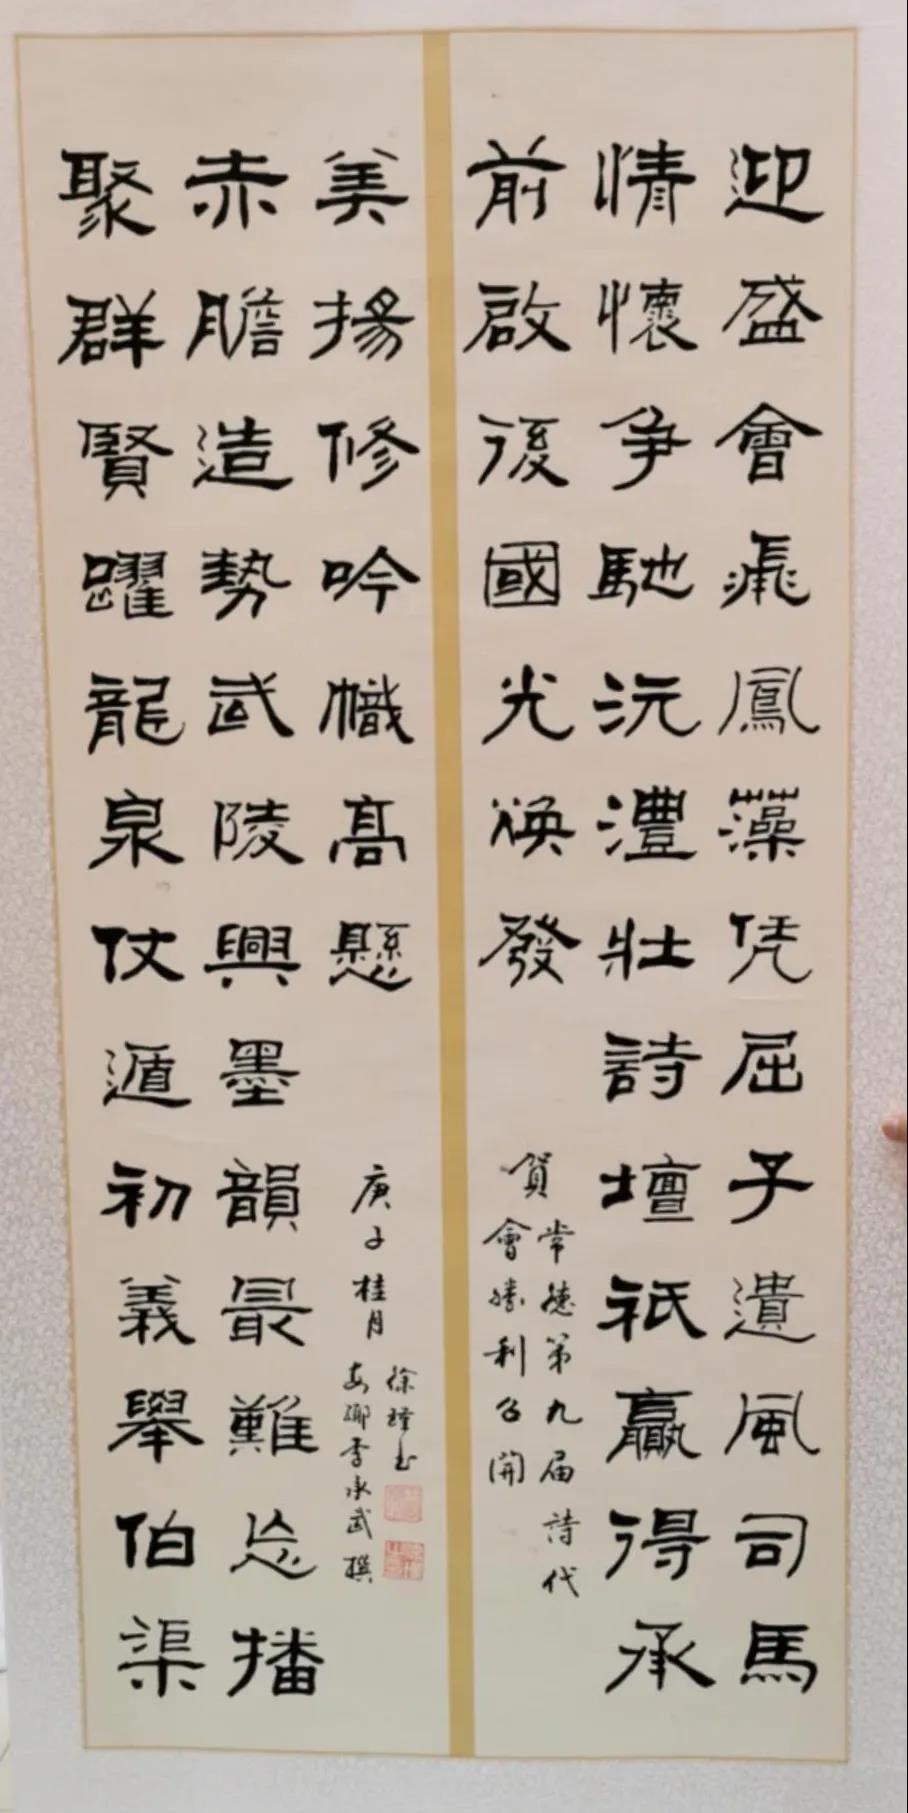 迎盛會飛鳳藻凭屈子遺風司馬
情懷争馳沅澧壯詩壇祇贏得承
前啟後國光焕發
賀常德第九届詩代
會勝利召開
聚群賢躍龍泉仗遁初義舉伯渠
赤膽造勢武陵興墨韻最難忘播
美揚修吟幟高懸
庚子桂月
安鄉李承武撰
徐书